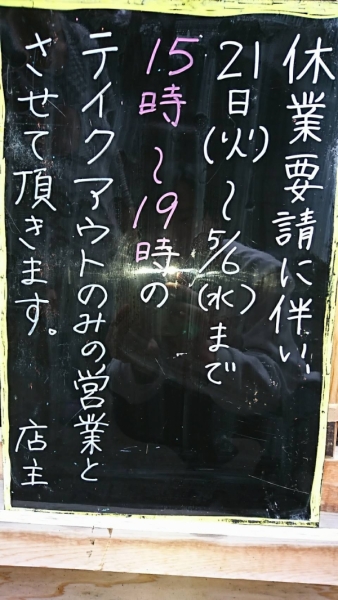 休業要請に伴い
21日(火)〜5/6(水)まで
15時〜19時の
テイクアウトのみの営業と
させて頂きます。 店主